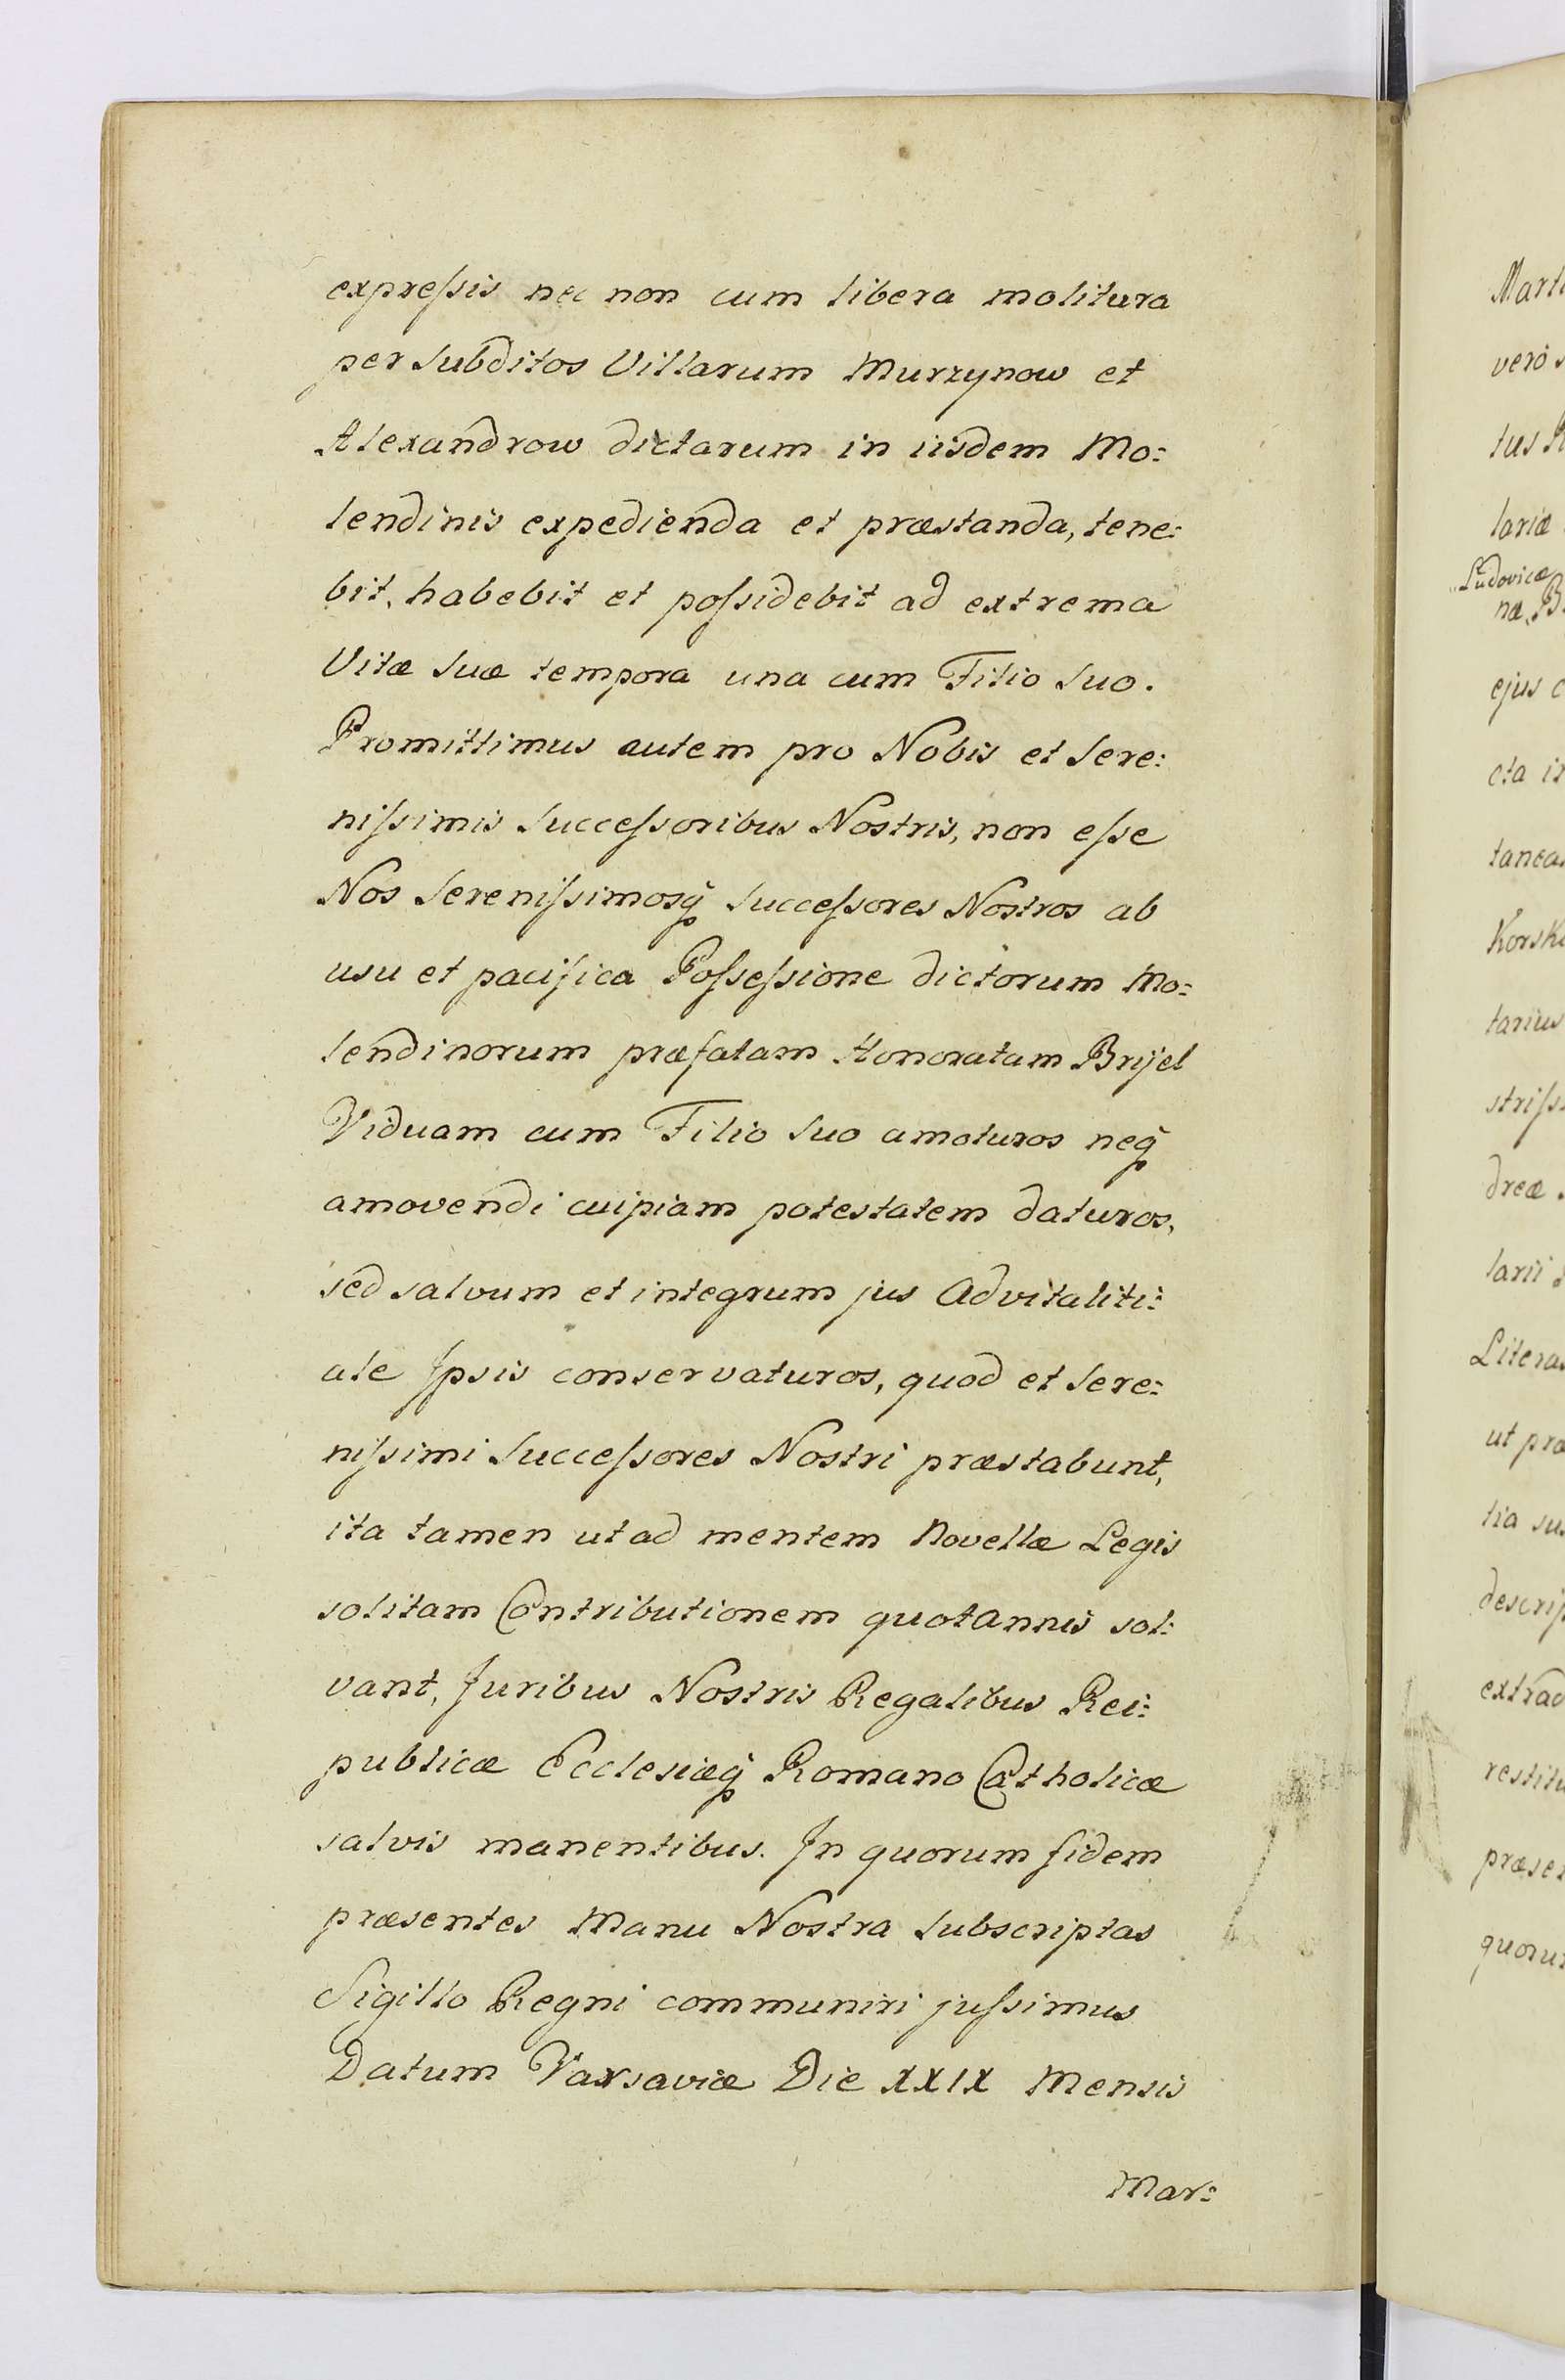 expreſsis nec non cum libera molitura
per Subditos Villarum Murzynow et
Alexandrow dictarum in iisdem Mo:
lendinis expedienda et præstanda, tene:
bit, habebit et poſsidebit ad extrema
Vitæ Suæ tempora una cum Filio Suo.
Promittimus autem pro Nobis et Sere:
niſsimis Succeſsoribus Nostris, non eſse
Nos Sereniſsimosq̃ Succeſsores Nostros ab
usu et pacifica Poſseſsione dictorum Mo:
lendinorum præfatam Honoratam Brijel
Viduam cum Filio Suo amoturos neq̃
amovendi cuipiam potestatem daturos,
sed salvum et integrum jus Advitaliti:
ale Ipsis conservaturos, quod et Sere:
niſsimi Succeſsores Nostri præstabunt,
ita tamen ut ad mentem Novellæ Legis
solitam Contributionem quotannis sol:
vant, Juribus Nostris Regalibus Rei:
publicæ Ecclesiæq̃ Romano Catholicæ
salvis manentibus. In quorum fidem
præsentes Manu Nostra Subscriptas
Sigillo Regni communiri juſsimus
Datum Varsaviæ Die XXIX Mensis
Mar:
Marti
vero s
tus R
lariæ
Ludovicæ
næ, B.
ejus c
cta in
tanea
Korsk
tarius
striſs
dreæ
larii
Litera
ut præ
tia su
descrip
extrad
restitu
præse
quoru